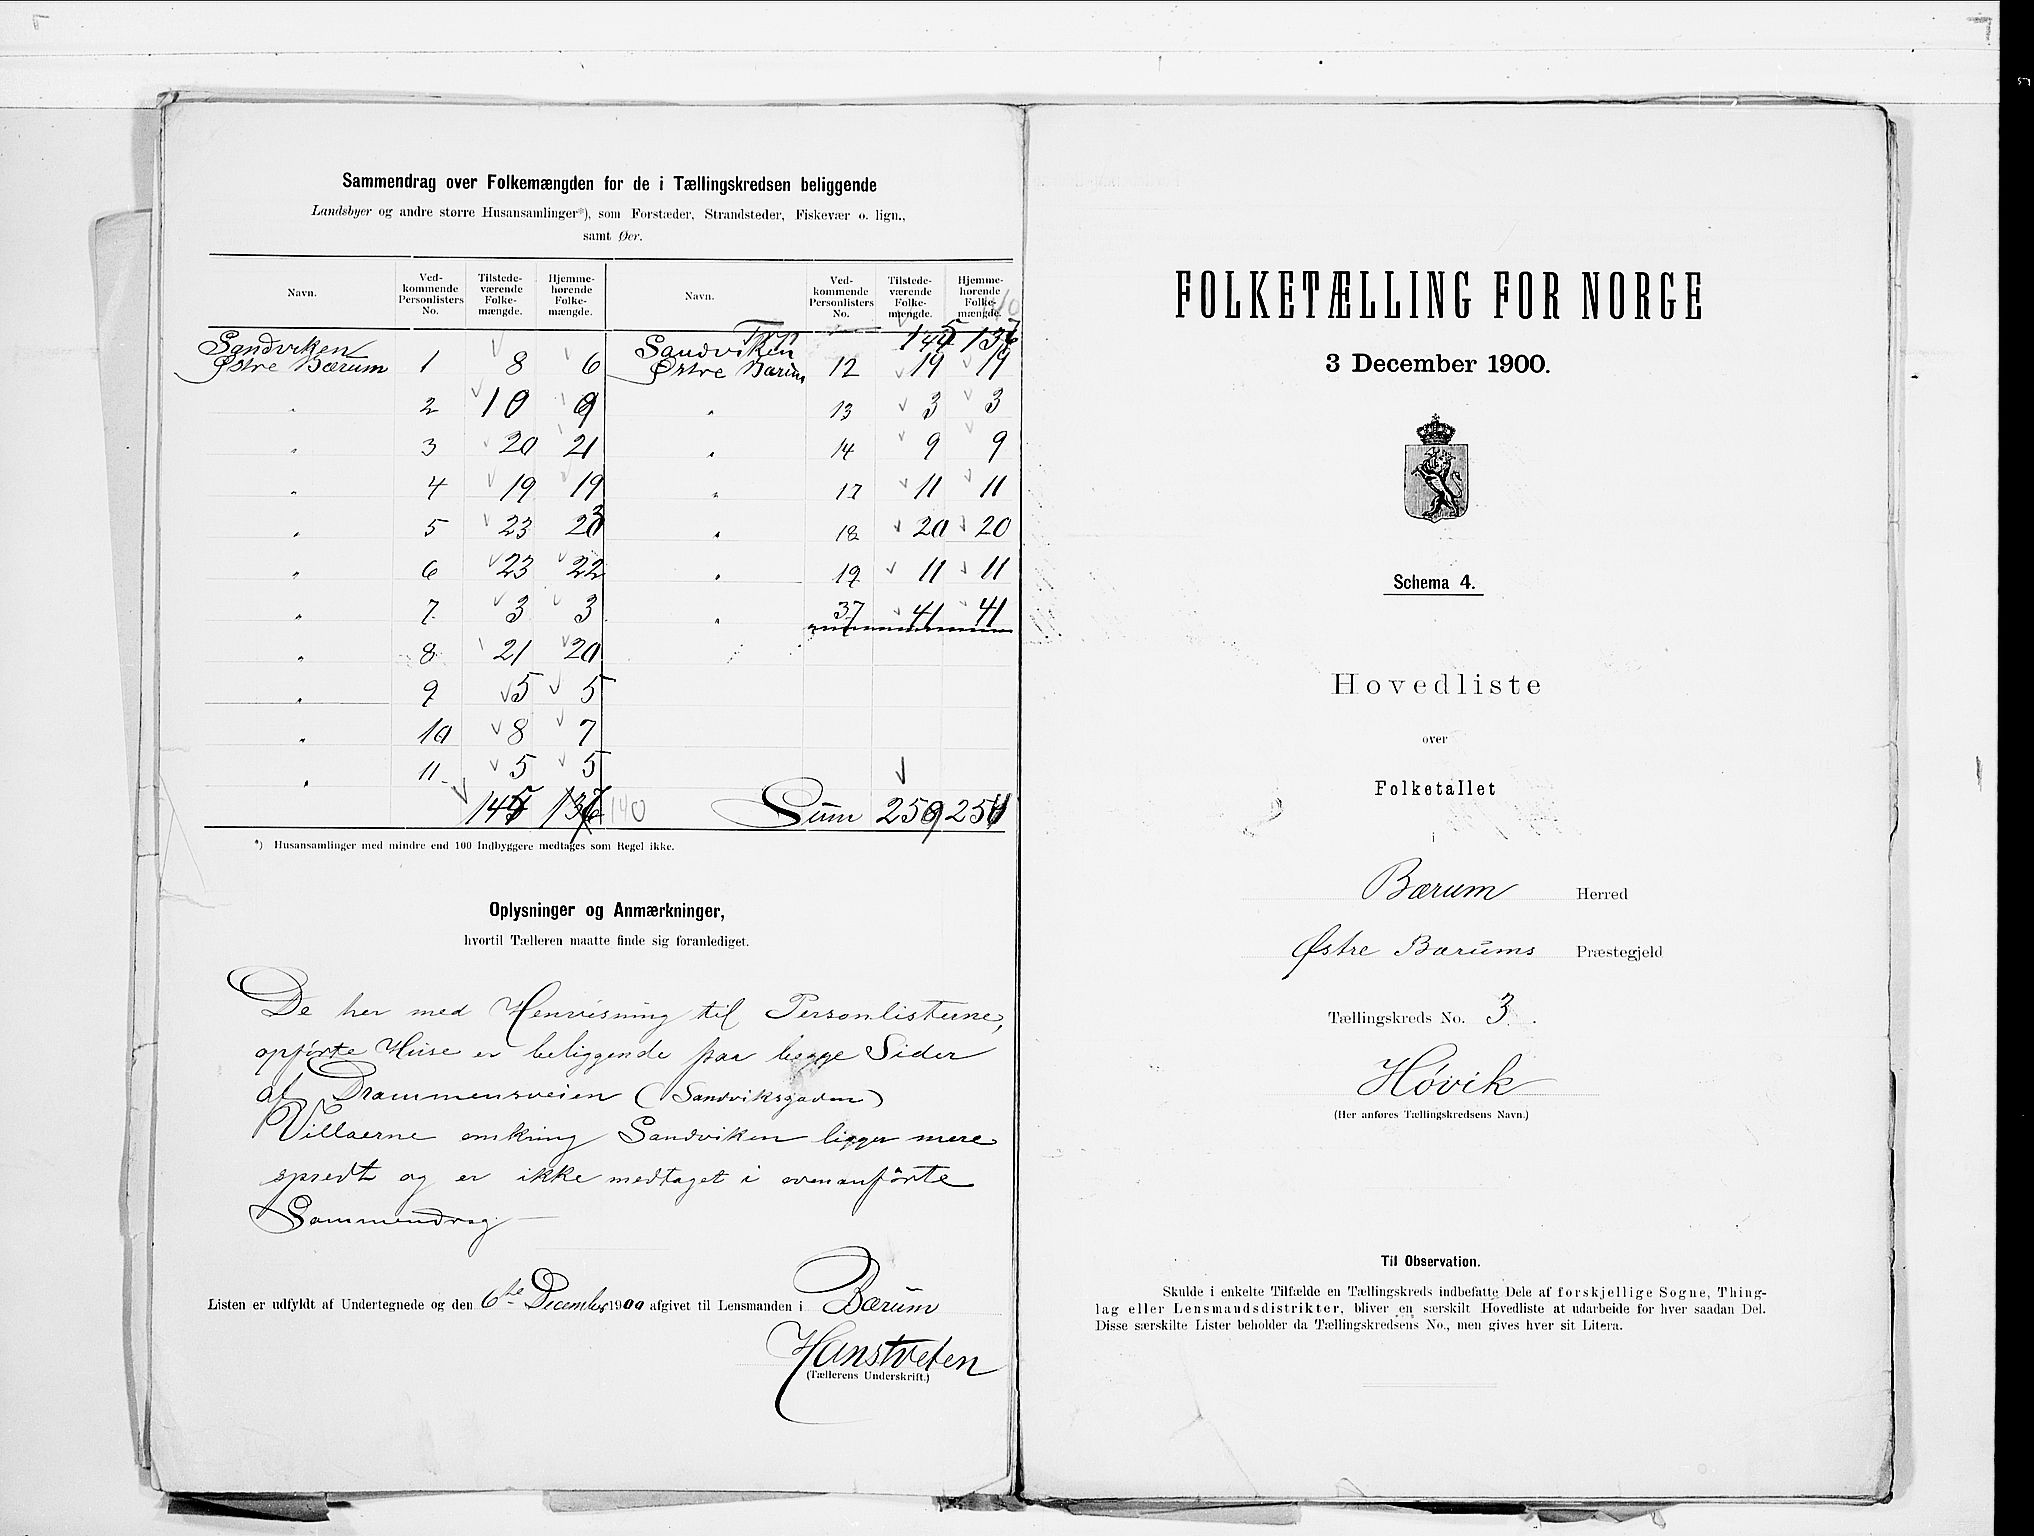 Sammendrag over Folkemængden for de i Tællingskredsen beliggende
Landsbyer og andre større Husansamlinger*), som Forstæder, Strandsteder, Fiskevær o. lign.,
samt Øer.
Navn. Ved-kommende Personlisters No. Tilstede-værende Folke-mængde. Hjemme-hørende Folke-mængde. Navn. Ved-kommende Personlisters No. Tilstede-værende Folke-mængde. Hjemme-hørende Folke-mængde.
Sandviken Sandviken
Østre Bærum 1 8 6 Østre Bærum 12 19 19
" 2 10 9 " 13 3 3
" 3 20 21 " 14 9 9
" 4 19 19 " 17 11 11
" 5 23 23 " 18 20 20
" 6 23 22 " 19 11 11
" 7 3 3 " 37 41 41
" 8 21 20
" 9 5 5
" 10 8 7
" 11 5 5
145 140 Sum 259
*) Husansamlinger med mindre end 100 Indbyggere medtages som Regel ikke.
Oplysninger og Anmærkninger,
hvortil Tælleren maatte finde sig foranlediget.
De her med Henvisning til Personlisterne,
opførte Huse er beliggende paa begge Sider
af Drammensveien (Sandviksgaden)
Villaerne omkring Sandviken ligger mere
spredt og er ikke medtaget i ovenanførte
Sammendrag.
Listen er udfyldt af Undertegnede og den 6te December 1900 afgivet til Lensmanden i Bærum
Hanstveten
(Tællerens Underskrift.)
FOLKETÆLLING FOR NORGE
3 December 1900.
Schema 4.
Hovedliste
over
Folketallet
i
Bærum Herred
Østre Bærums Præstegjeld
Tællingskreds No. 3.
Høvik
(Her anføres Tællingskredsens Navn.)
Til Observation.
Skulde i enkelte Tilfælde en Tællingskreds indbefatte Dele af forskjellige Sogne, Thing-
lag eller Lensmandsdistrikter, bliver en særskilt Hovedliste at udarbeide for hver saadan Del.
Disse særskilte Lister beholder da Tællingskredsens No., men gives hver sit Litera.